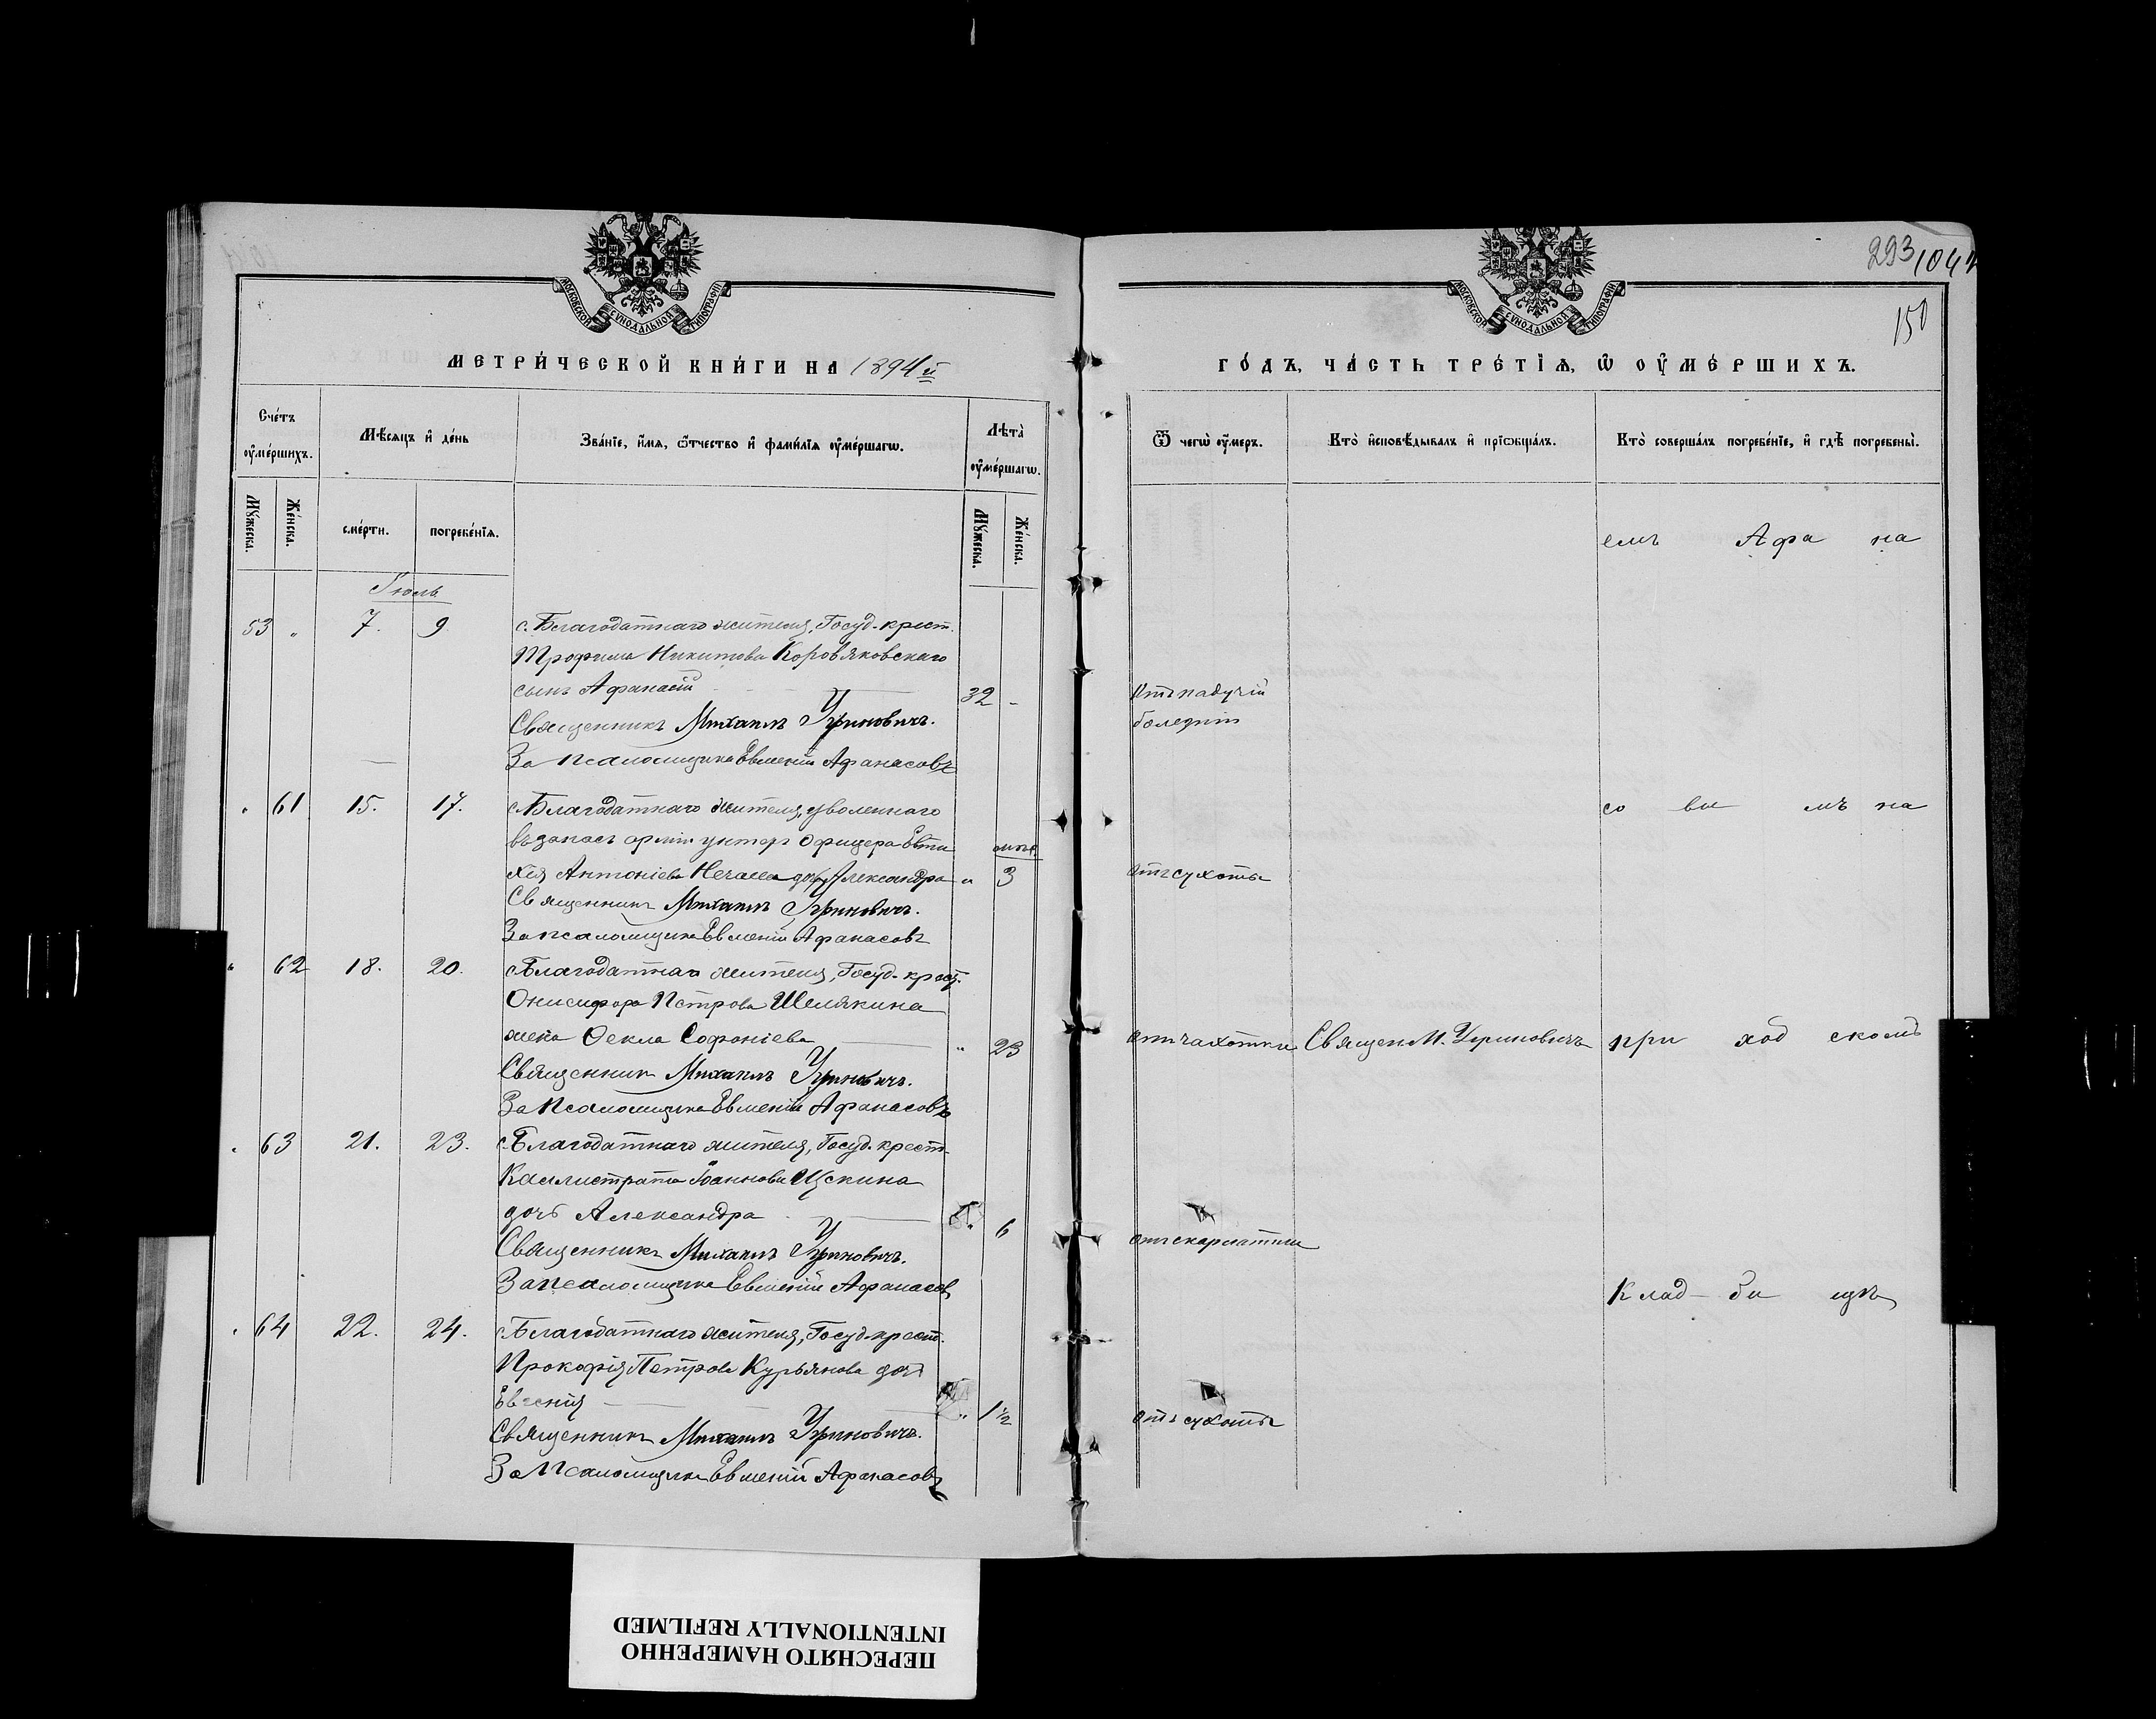 МОСКОВСКОЙ СУНОДАЛЬНОЙ ТИПОГРАФІИ
МЕТРИ́ЧЕСКОЙ КНИ́ГИ НА 1894 й
Сче́тъ ᲂу҆ме́ршихъ.
Мѣ́сяцъ и҆ де́нь
Зва́нїе, и҆́мя, ѿтчество и҆ фами́лїя ᲂу҆ме́ршагѡ.
Лѣ́та ᲂу҆ме́ршагѡ.
Мꙋ́жеска.
Же́нска.
сме́рти.
погребе́нїя.
Мꙋ́жеска.
Же́нска.
Іюль
53 " 7. 9
с. Благодатнаго жителя, Госуд. крест.
Трофима Никитова Коровяковскаго
сынъ Афанасій 32 -
Священникъ Михаилъ Угриновичъ.
За псаломщика Евменій Афанасовъ
" 61 15. 17.
с. Благодатнаго жителя, уволеннаго
въ запасъ арміи унтеръ офицера Евти
хія Антоніева Нечаева дочь Александра " мѣс. 3
Священникъ Михаилъ Угриновичъ.
За псаломщика Евменій Афанасовъ
" 62 18. 20.
с. Благодатнаго жителя, Госуд. крест.
Онисифора Петрова Шелякина
жена Ѳекла Софоніева " 23
Священникъ Михаилъ Угриновичъ.
За псаломщика Евменій Афанасовъ
" 63 21. 23.
с. Благодатнаго жителя, Госуд. крест.
Каллистрата Іоаннова
дочь Александра " 6
Священникъ Михаилъ Угриновичъ.
За псаломщика Евменій Афанасовъ
" 64 22. 24.
с. Благодатнаго жителя, Госуд. крест.
Прокофія Петрова Курьянова дочь
Евгенія " 1 1/2
Священникъ Михаилъ Угриновичъ.
За псаломщика Евменій Афанасовъ
293 104
150
МОСКОВСКОЙ СУНОДАЛЬНОЙ ТИПОГРАФІИ
ГО́ДЪ, ЧА́СТЬ ТРЕ́ТІЯ, Ѡ ОУ҆МЕ́РШИХЪ.
Ѿ чегѡ̀ ᲂу҆́меръ.
Кто̀ и҆сповѣ́дывалъ и҆ прїѡбща́лъ.
Кто̀ соверша́лъ погребе́нїе, и҆ гдѣ̀ погребены̀.
емъ Афа на
Отъ падучій
болезни
со вы мъ на
отъ сухоты
отъ чахотки Священ. М. Угриновичъ при ход скомъ
отъ скарлатины
Клад- би щѣ
отъ сухоты
ПЕРЕСНЯТО НАМЕРЕННО
INTENTIONALLY REFILMED